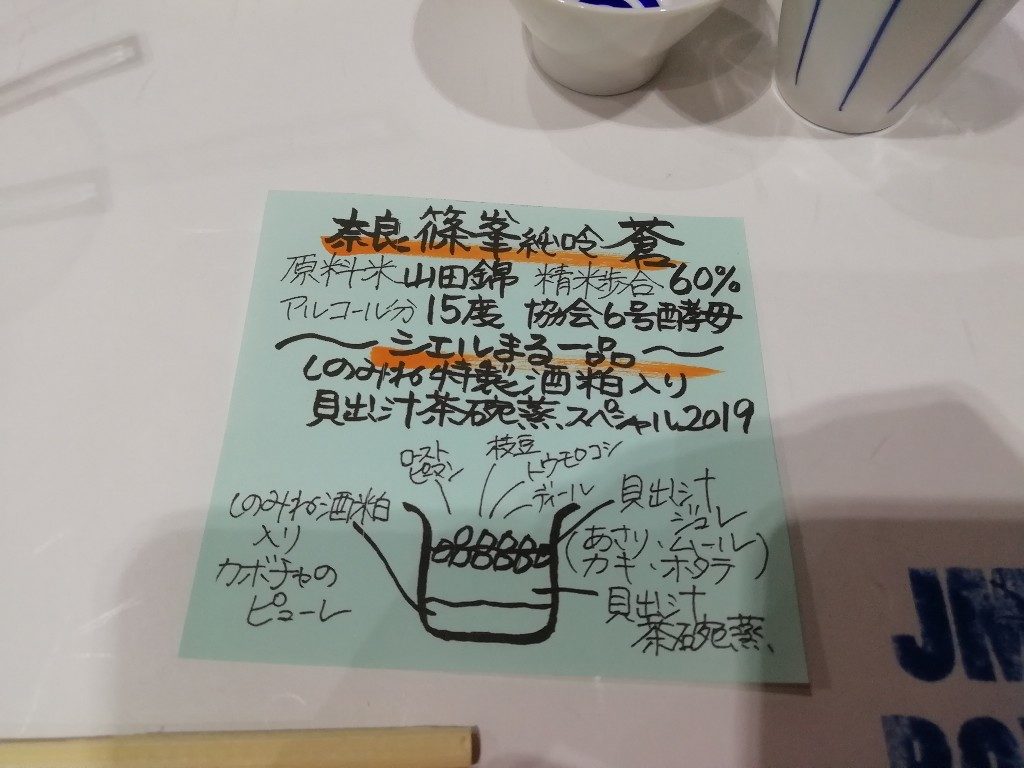 奈良 篠峯 純吟 蒼
原料米 山田錦 精米歩合 60%
アルコール分 15度 協会6号酵母
〜シエルまる一品〜
しのみね特製酒粕入り
貝出し汁茶碗蒸スペシャル2019
ロースト
ピーマン
枝豆
トウモロコシ
ディール
しのみね酒粕
入り
カボチャの
ピューレ
貝出し汁
ジュレ
(あさり、ムール
カキ、ホタテ)
貝出し汁
茶碗蒸、